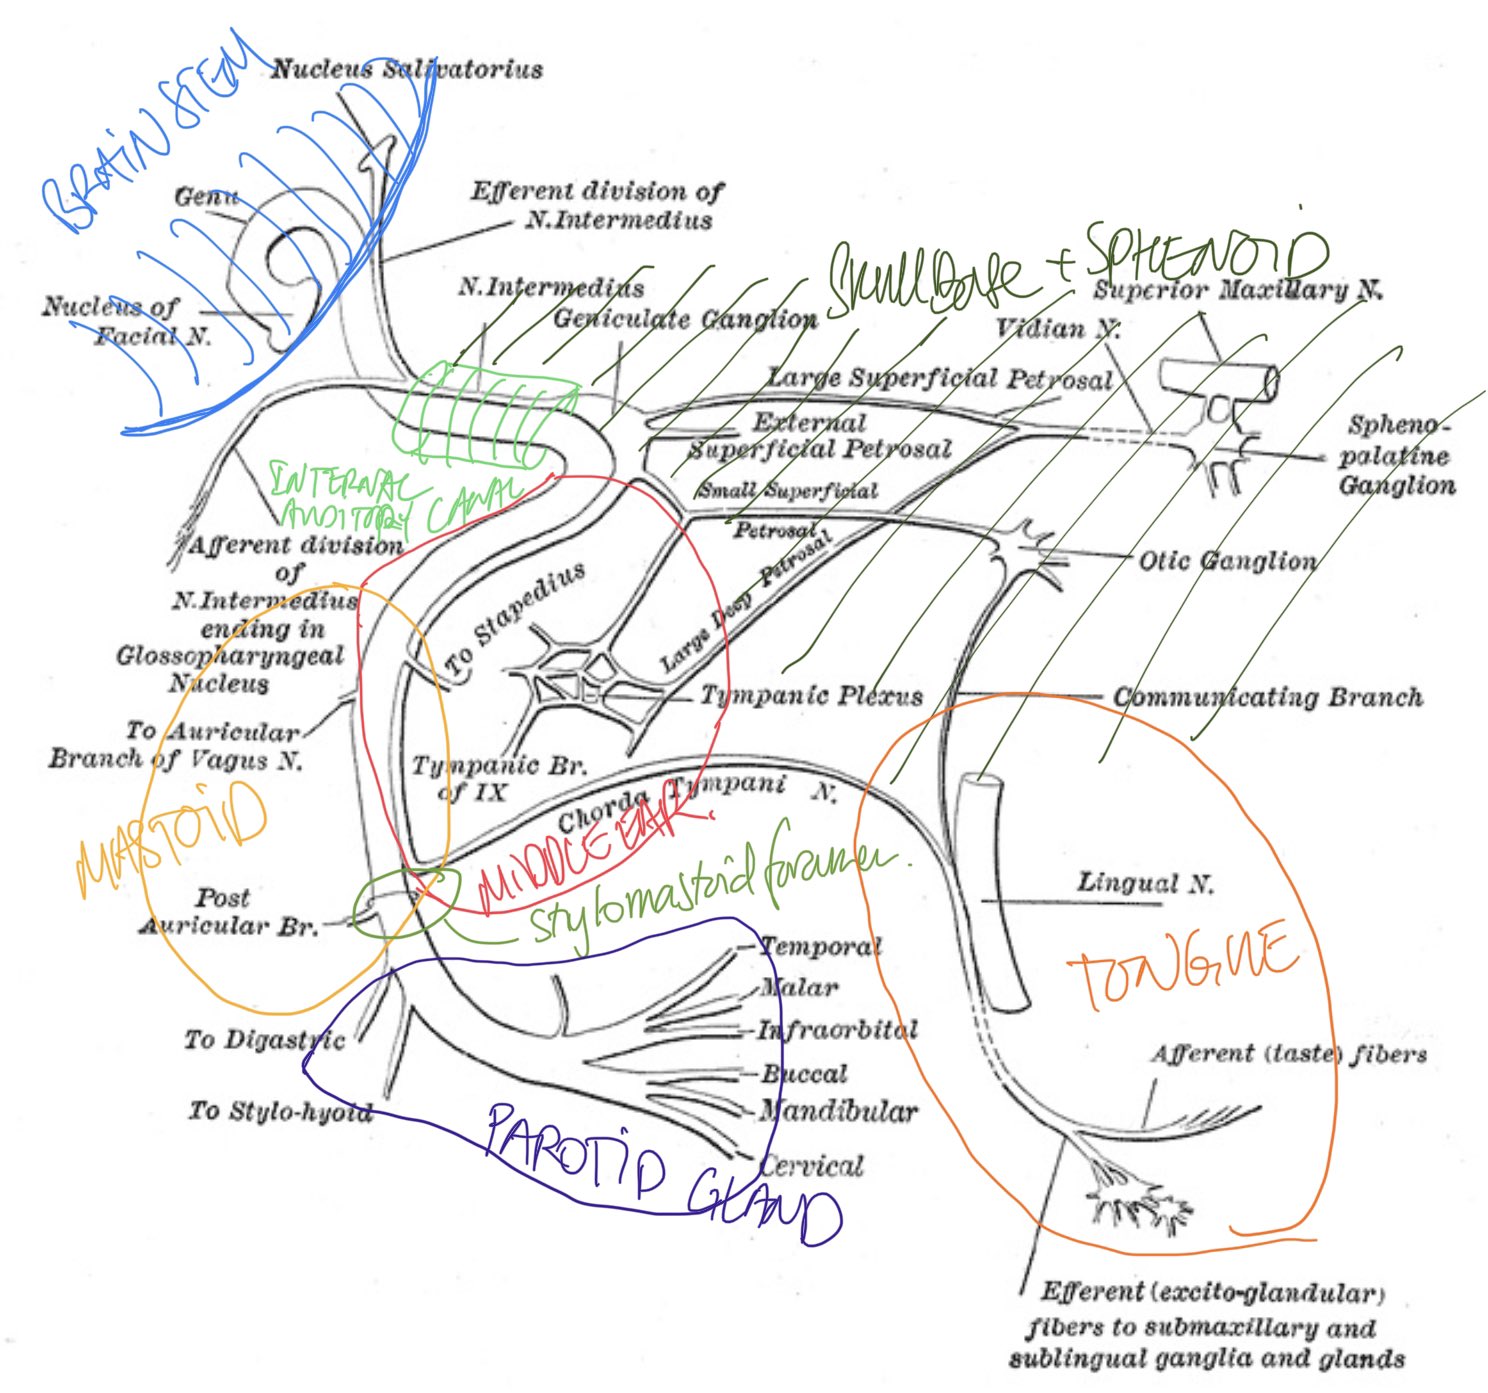 BRAIN STEM
Nucleus Salivatorius
Genu
Efferent division of
N.Intermedius
Nucleus of
Facial N.
N.Intermedius
Geniculate Ganglion
Skull Base + SPHENOID
Superior Maxillary N.
Vidian N.
Large Superficial Petrosal
External
Superficial Petrosal
Spheno-
palatine
Ganglion
Small Superficial
Petrosal
Large Deep Petrosal
INTERNAL
AUDITORY CANAL
Afferent division
of
N.Intermedius
ending in
Glossopharyngeal
Nucleus
Otic Ganglion
To Stapedius
Tympanic Plexus
Communicating Branch
To Auricular
Branch of Vagus N.
Tympanic Br.
of IX
Chorda Tympani N.
MASTOID
MIDDLE EAR.
stylomastoid foramen.
Post
Auricular Br.
Lingual N.
TONGUE
Temporal
Malar
Infraorbital
Buccal
Mandibular
Cervical
To Digastric
To Stylo-hyoid
PAROTID GLAND
Afferent (taste) fibers
Efferent (excito-glandular)
fibers to submaxillary and
sublingual ganglia and glands